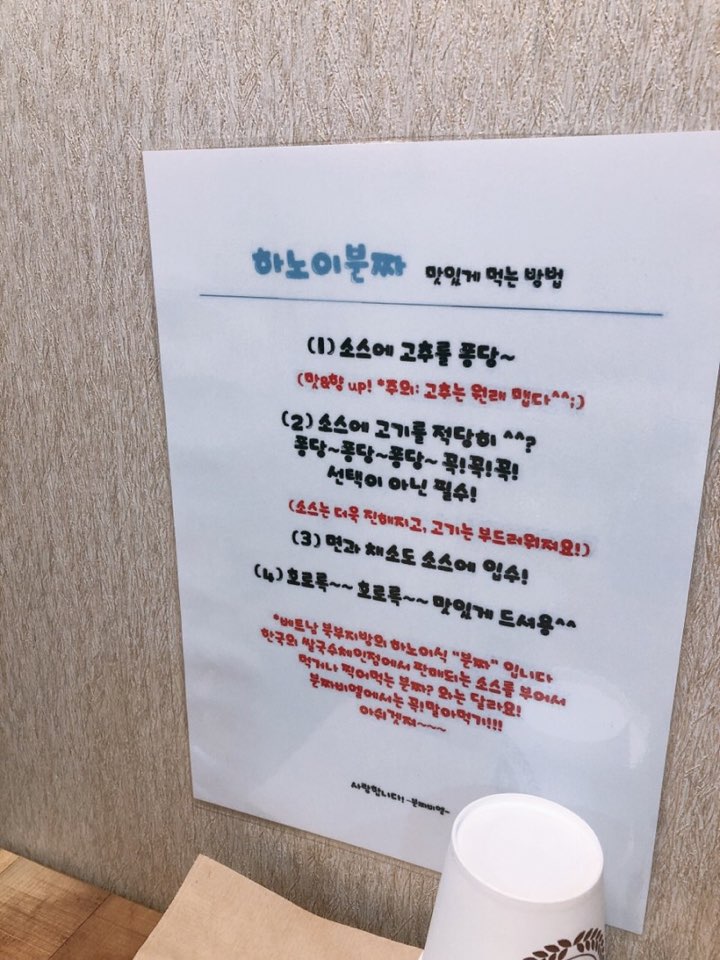 하노이분짜 맛있게 먹는 방법
(1) 소스에 고추를 퐁당~
(맛&향 up! *주의: 고추는 원래 맵다^^;)
(2) 소스에 고기를 적당히 ^^?
퐁당~퐁당~퐁당~ 꾹!꾹!꾹!
선택이 아닌 필수!
(소스는 더욱 진해지고, 고기는 부드러워져요!)
(3) 면과 채소도 소스에 입수!
(4) 호로록~~ 호로록~~ 맛있게 드셔용^^
*베트남 북부지방의 하노이식 "분짜" 입니다
한국의 쌀국수체인점에서 판매되는 소스를 부어서
먹거나 찍어먹는 분짜? 와는 달라요!
분짜비엣에서는 꼭!말아먹기!!!
아쉬겟져~~~
사랑합니다! -분짜비엣-